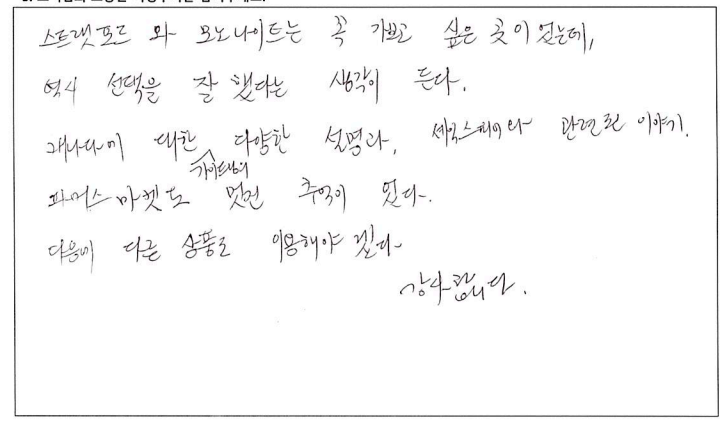 스트랫포드 와 모노나이트는 꼭 가보고 싶은 곳이 었는데,
역시 선택을 잘 했다는 생각이 든다.
캐나다에 대한 가이드님의 다양한 설명과, 세익스피어와 관련된 이야기.
파머스 마켓도 멋진 추억이 었다.
다음에 다른 상품도 이용해야 겠다
감사합니다.